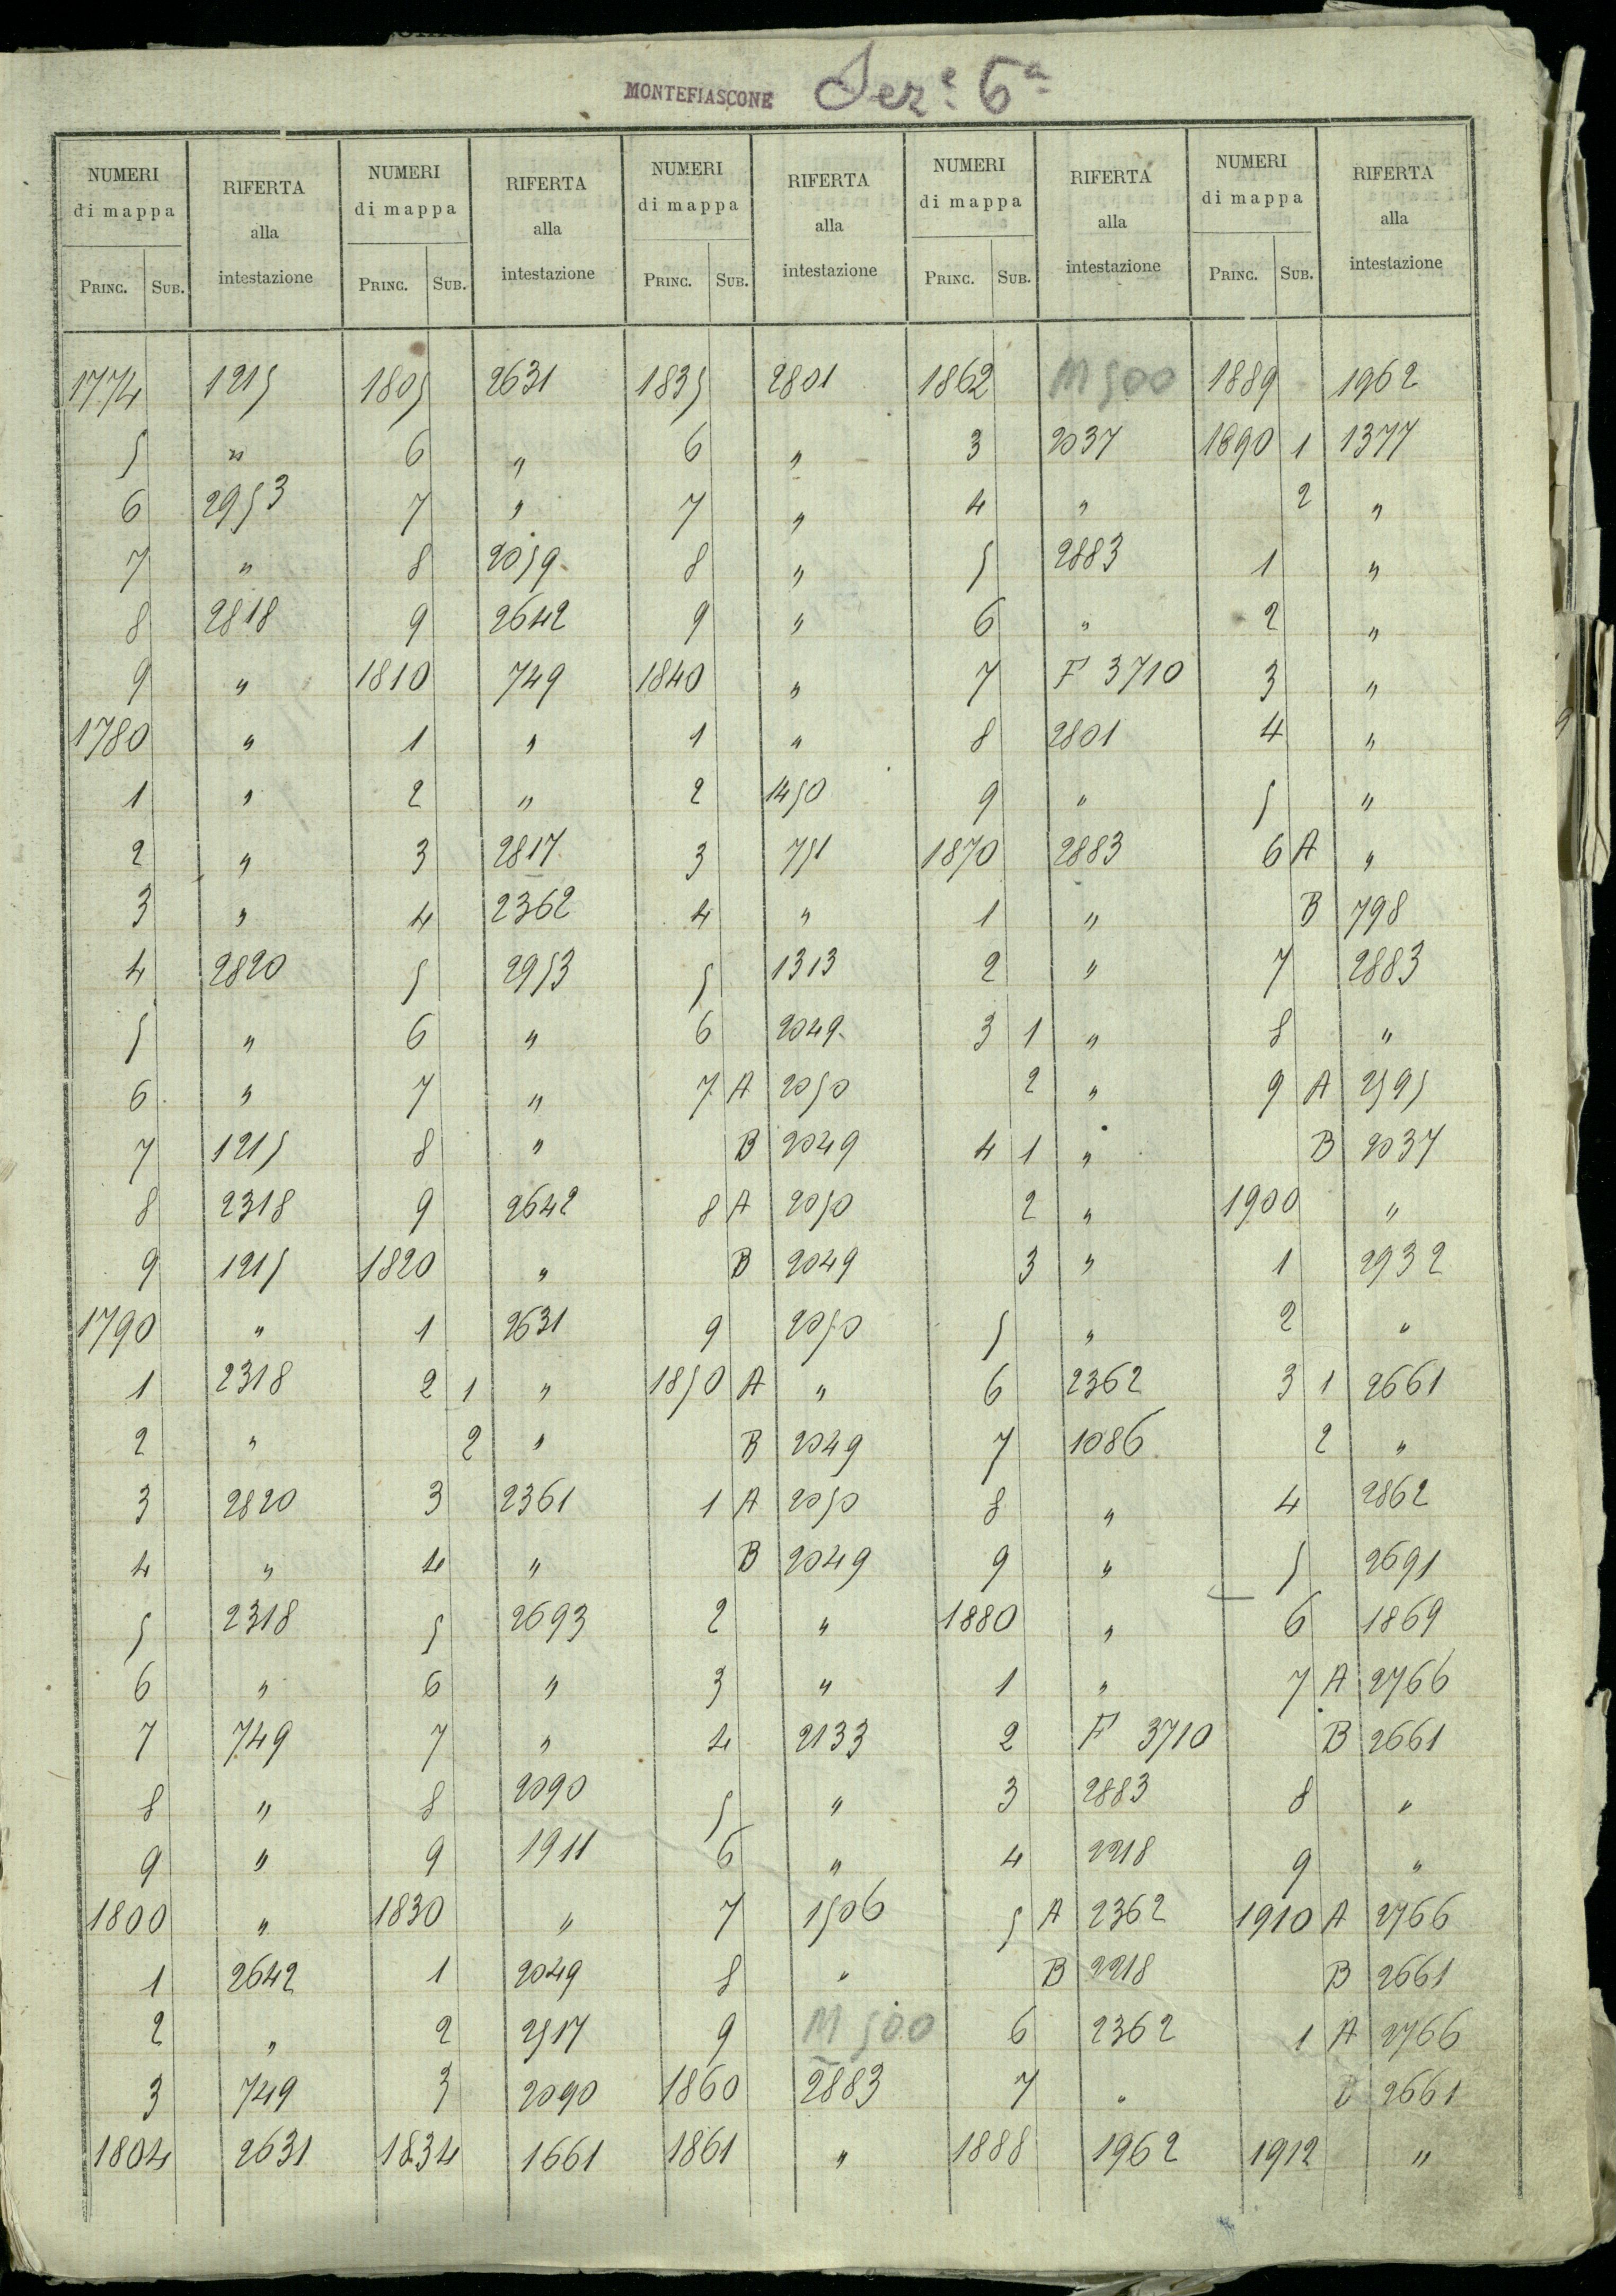 MONTEFIASCONE Sez.e 6a
NUMERI di mappa | RIFERTA alla intestazione | NUMERI di mappa | RIFERTA alla intestazione | NUMERI di mappa | RIFERTA alla intestazione | NUMERI di mappa | RIFERTA alla intestazione | NUMERI di mappa | RIFERTA alla intestazione
PRINC. | SUB. | PRINC. | SUB. | PRINC. | SUB. | PRINC. | SUB. | PRINC. | SUB.
1774 1215 1805 2631 1835 2801 1862 M 500 1889 1962
5 " 6 " 6 " 3 2037 1890 1 1377
6 2953 7 " 7 " 4 " 2 "
7 " 8 2059 8 " 5 2883 1 "
8 2818 9 2642 9 " 6 " 2 "
9 " 1810 749 1840 " 7 F 3710 3 "
1780 " 1 " 1 " 8 2801 4 "
1 " 2 " 2 1450 9 " 5 "
2 " 3 2817 3 751 1870 2883 6 A "
3 " 4 2362 4 " 1 " B 798
4 2820 5 2953 5 1313 2 " 7 2883
5 " 6 " 6 2049 3 1 " 8 "
6 " 7 " 7 A 2050 2 " 9 A 2595
7 1215 8 " B 2049 4 1 " B 2037
8 2318 9 2642 8 A 2050 2 " 1900 "
9 1215 1820 " B 2049 3 " 1 2932
1790 " 1 2631 9 2050 5 " 2 "
1 2318 2 1 " 1850 A " 6 2362 3 1 2661
2 " 2 " B 2049 7 1086 2 "
3 2820 3 2361 1 A 2050 8 " 4 2862
4 " 4 " B 2049 9 " 5 2691
5 2318 5 2693 2 " 1880 " 6 1869
6 " 6 " 3 " 1 " 7 A 2766
7 749 7 " 4 2133 2 F 3710 B 2661
8 " 8 2090 5 " 3 2883 8 "
9 " 9 1911 6 " 4 2218 9 "
1800 " 1830 " 7 1506 5 A 2362 1910 A 2766
1 2642 1 2049 8 " B 2218 B 2661
2 " 2 2517 9 M 500 6 2362 1 A 2766
3 749 3 2090 1860 2883 7 " 2661
1804 2631 1834 1661 1861 " 1888 1962 1912 "